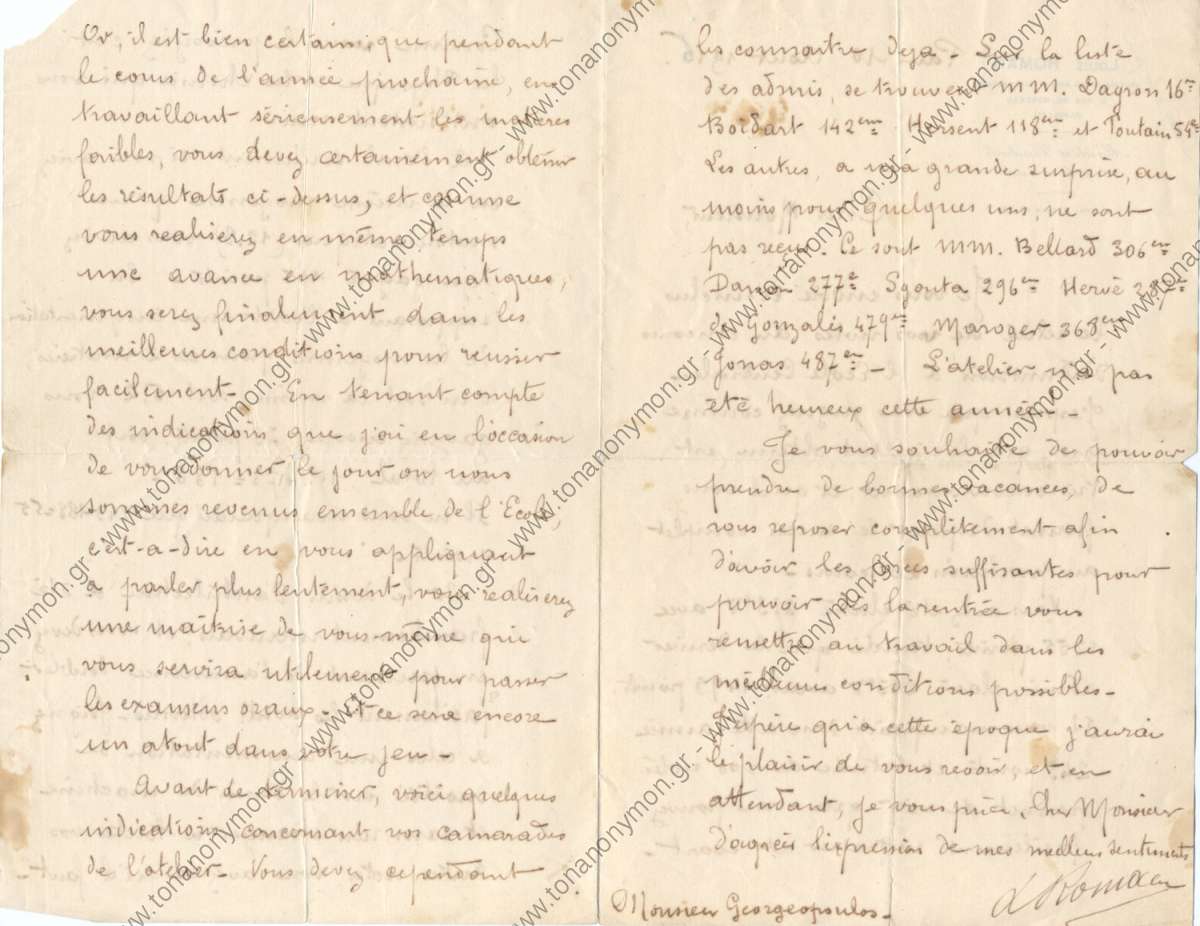 Or, il est bien certain, que pendant
le cours de l'année prochaine, en
travaillant sérieusement les matières
faibles, vous devez certainement obtenir
les résultats ci-dessus, et comme
vous realiserez en même temps
une avance en mathematiques,
vous serez finalement dans les
meilleures conditions pour reussir
facilement - En tenant compte
des indications que j'ai eu l'occasion
de vous donner le jour ou nous
sommes revenus ensemble de l'Ecole,
c'est-a-dire en vous appliquant
a parler plus lentement, vous realiserez
une maitrise de vous-même qui
vous servira utilement pour passer
les examens oraux - et ce sera encore
un atout dans votre jeu -
Avant de terminer, voici quelques
indications concernant vos camarades
de l'atelier - Vous devez cependant
les connaitre deja - Sur la liste
des admis, se trouvent MM. Dagron 16me
Boidart 142eme Hersent 118eme et Toutain 54e
Les autres, a ma grande surprise, au
moins pour quelques uns, ne sont
pas reçus. Ce sont MM. Bellard 306eme
277e Sgouta 296eme Hervé
de Gonzalès 479eme Maroger 368eme
Jonas 487eme - L'atelier n'a pas
eté heureux cette année -
Je vous souhaite de pouvoir
prendre de bonnes vacances, de
vous reposer complètement afin
d'avoir les forces suffisantes pour
pouvoir dès la rentrée vous
remettre au travail dans les
meilleures conditions possibles -
J'espère qu'a cette epoque j'aurai
le plaisir de vous revoir, et en
attendant, je vous prie, Cher Monsieur
d'agréer l'expression de mes meilleurs sentiments
Monsieur Georgeopoulos -
www.tonanonymon.gr